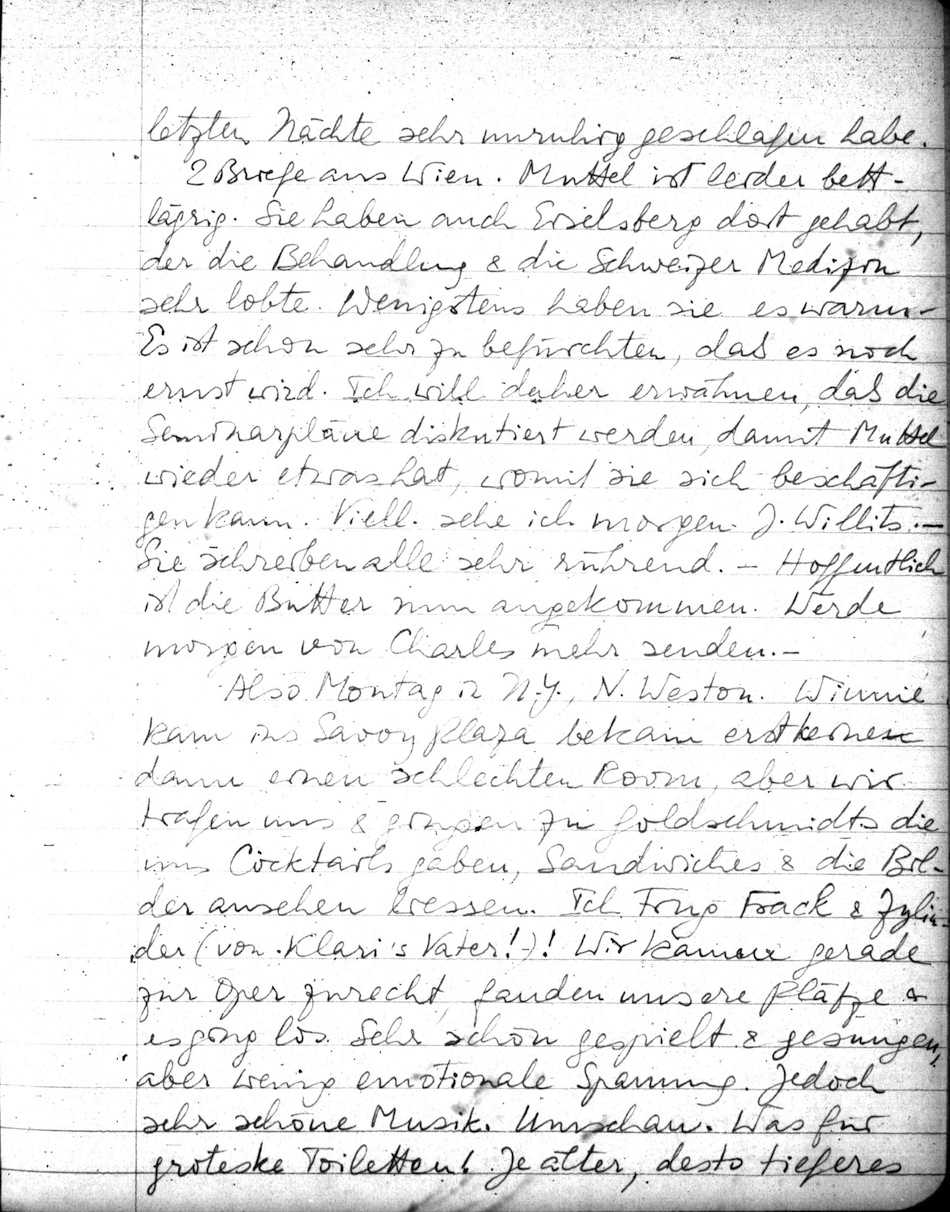 letzten Nächte sehr unruhig geschlafen habe.
2 Briefe aus Wien. Muttel ist leider bett-
lägrig. Sie haben auch Eiselsberg dort gehabt,
der die Behandlung & die Schweizer Medizin
sehr lobte. Wenigstens haben sie es warm –
Es ist schon sehr zu befürchten, daß es noch
ernst wird. Ich will daher erwähnen, daß die
Seminarpläne diskutiert werden, damit Muttel
wieder etwas hat, womit sie sich beschäfti-
gen kann. Viell. sehe ich morgen J. Willits. –
Sie schreiben alle sehr rührend. – Hoffentlich
ist die Butter nun angekommen. Werde
morgen von Charles mehr senden. –
Also Montag in N.Y., N. Weston. Winnie
kam ins Savoy Plaza bekam erst keinen
dann einen schlechten Room, aber wir
trafen uns & gingen zu Goldschmidts die
uns Cocktails gaben, Sandwiches & die Bil-
der ansehen liessen. Ich trug Frack & Zylin-
der (von Klari's Vater!)! Wir kamen gerade
zur Oper zurecht, fanden unsere Plätze &
es ging los. Sehr schön gespielt & gesungen,
aber wenig emotionale Spannung. Jedoch
sehr schöne Musik. Umschau. Was für
groteske Toiletten! Je älter, desto tieferes